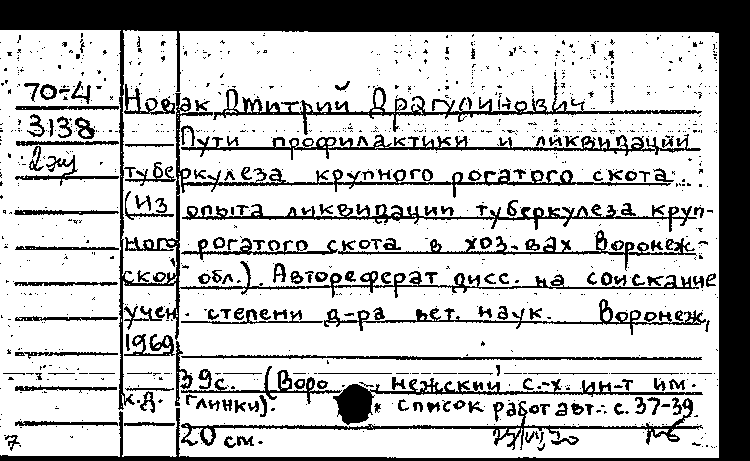 70-4 Новак, Дмитрий Драгудинович
3138 Пути профилактики и ликвидации
2 экз туберкулеза крупного рогатого скота
(Из опыта ликвидации туберкулеза круп-
ного рогатого скота в хоз-вах Воронеж-
ской обл.). Автореферат дисс. на соискание
учен. степени д-ра вет. наук. Воронеж,
1969.
39с. (Воронежский с.-х. ин-т им.
к.д. Глинки). Список работ авт.: с. 37-39
7 20 см.